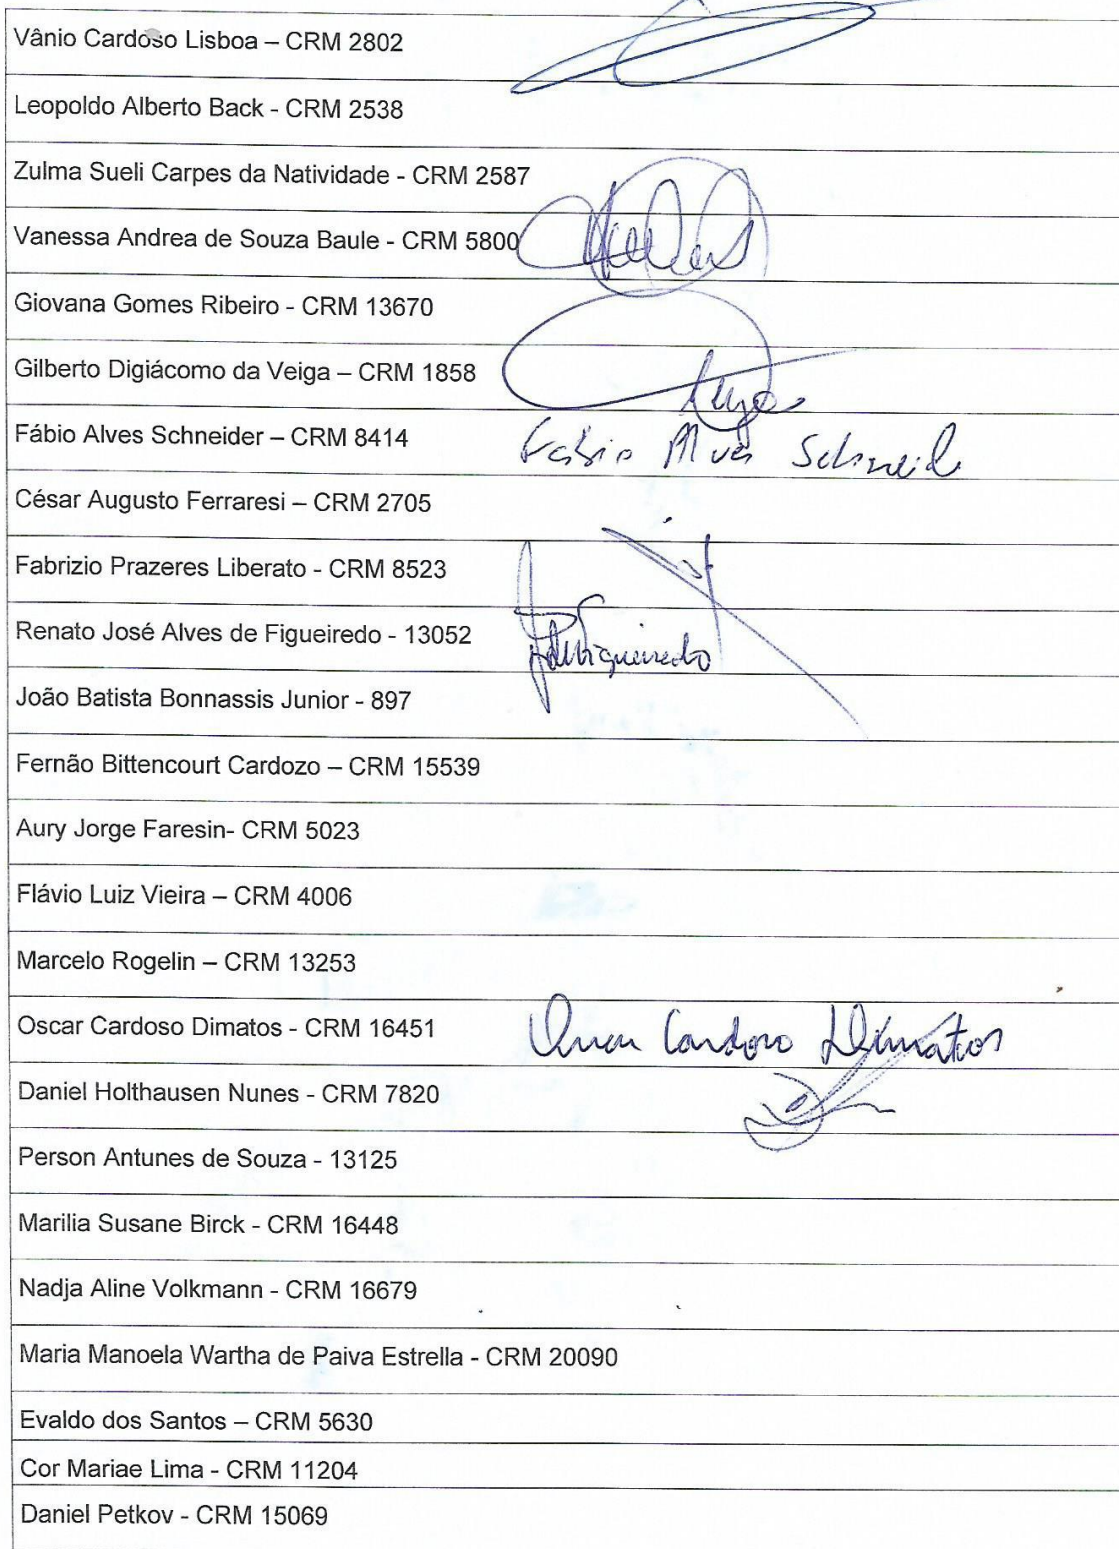 Vânio Cardoso Lisboa – CRM 2802
Leopoldo Alberto Back - CRM 2538
Zulma Sueli Carpes da Natividade - CRM 2587
Vanessa Andrea de Souza Baule - CRM 5800
Giovana Gomes Ribeiro - CRM 13670
Gilberto Digiácomo da Veiga – CRM 1858
Fábio Alves Schneider – CRM 8414 Fabio Alves Schneid
César Augusto Ferraresi – CRM 2705
Fabrizio Prazeres Liberato - CRM 8523
Renato José Alves de Figueiredo - 13052
João Batista Bonnassis Junior - 897
Fernão Bittencourt Cardozo – CRM 15539
Aury Jorge Faresin- CRM 5023
Flávio Luiz Vieira – CRM 4006
Marcelo Rogelin – CRM 13253
Oscar Cardoso Dimatos - CRM 16451 Oscar Cardoso Dimatos
Daniel Holthausen Nunes - CRM 7820
Person Antunes de Souza - 13125
Marilia Susane Birck - CRM 16448
Nadja Aline Volkmann - CRM 16679
Maria Manoela Wartha de Paiva Estrella - CRM 20090
Evaldo dos Santos – CRM 5630
Cor Mariae Lima - CRM 11204
Daniel Petkov - CRM 15069